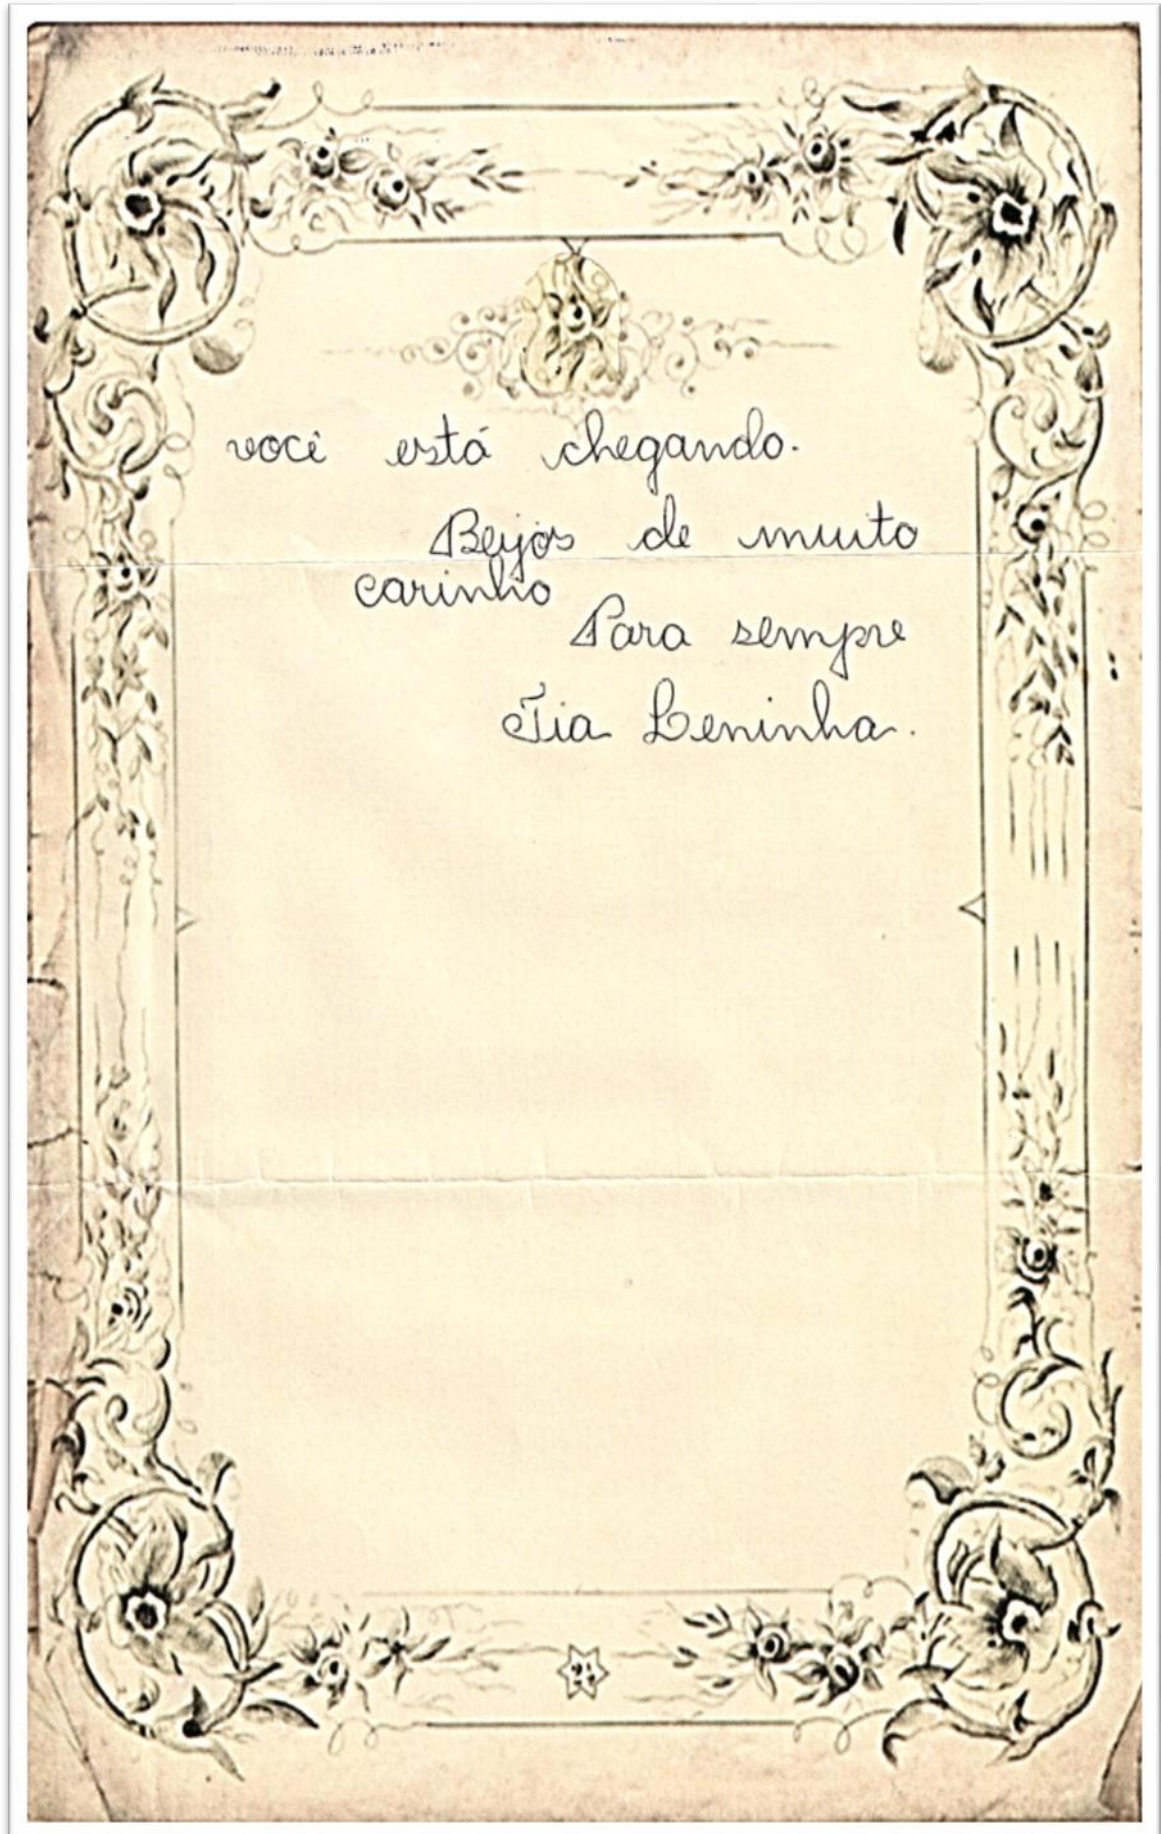 você está chegando.
Beijos de muito
carinho
Para sempre
Tia Leninha.